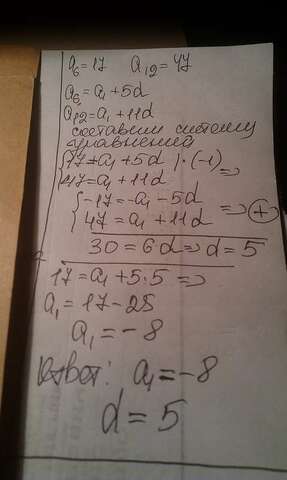 a₆=17 a₁₂=47
a₆=a₁+5d
a₁₂=a₁+11d
составим систему
уравнения
{17=a₁+5d |·(-1)
47=a₁+11d =>
{-17=-a₁-5d
47=a₁+11d => (+)
30=6d=>d=5
17=a₁+5·5=>
a₁=17-25
a₁=-8
Ответ: a₁=-8
d=5